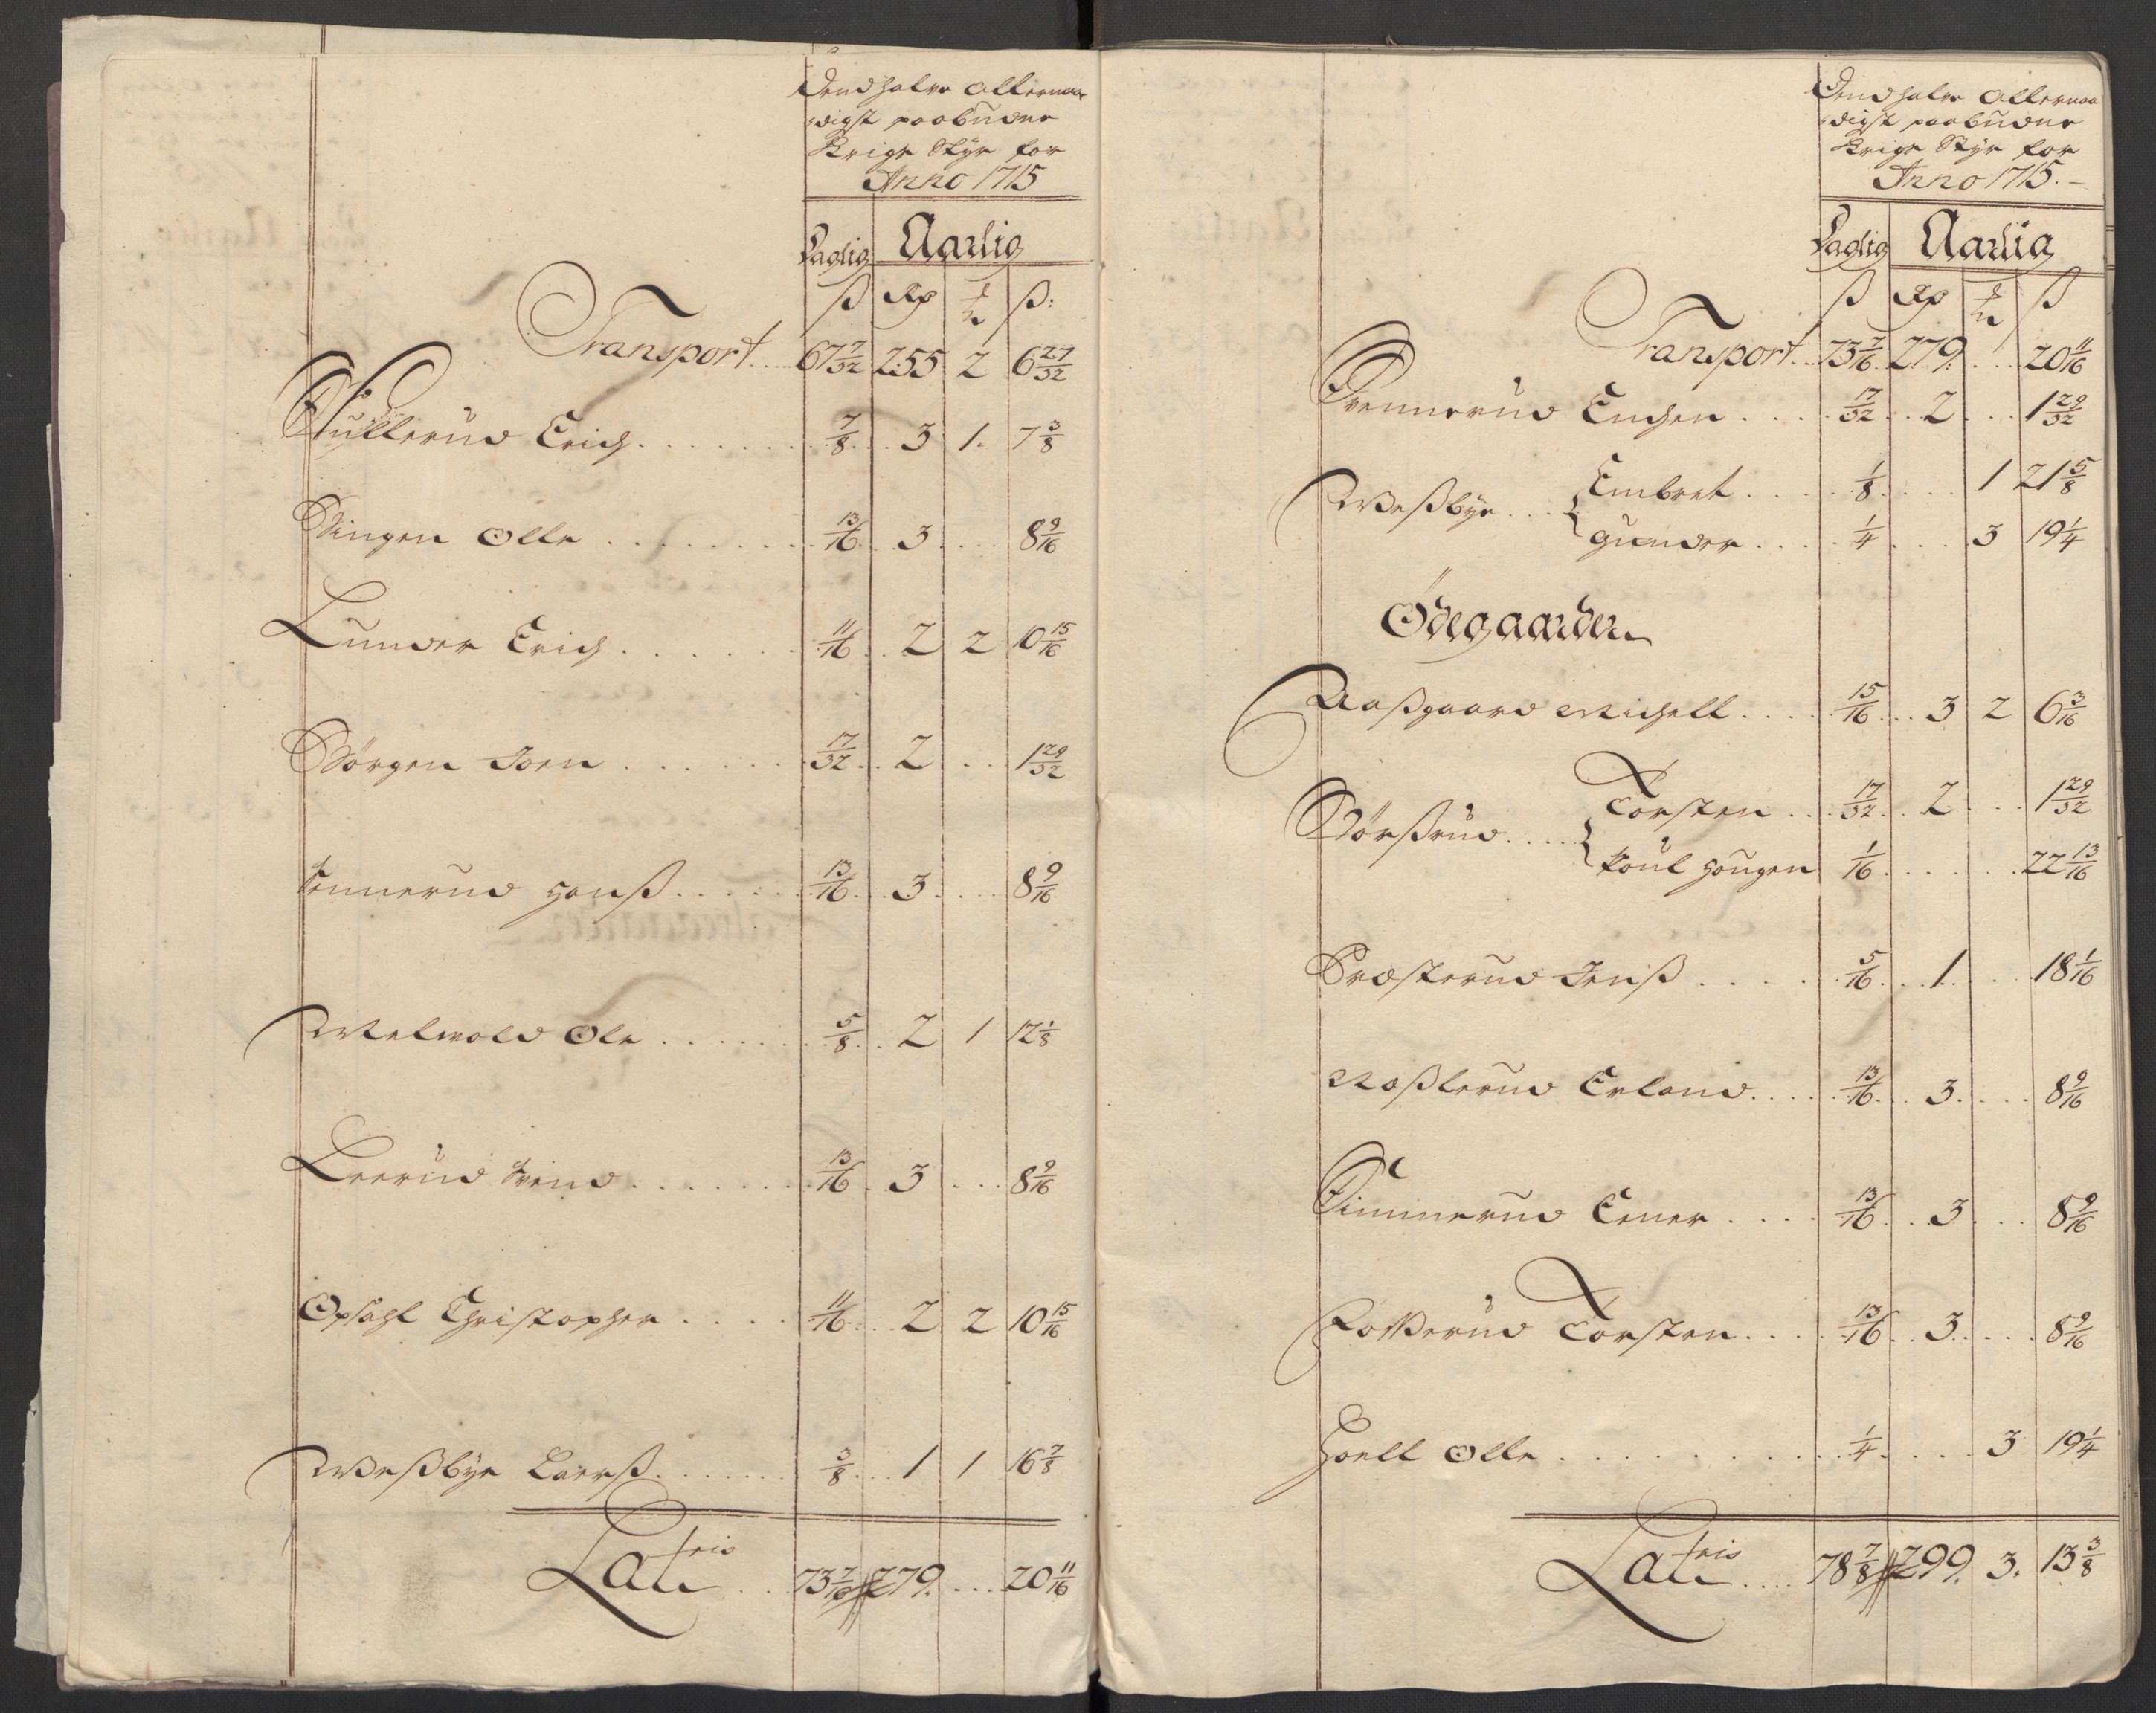 Dend halve allernaa
digst paabudne
Krigs Styr for
Anno 1715
Daglig Aarlig
ß Rdr ort ß:
Transport .... 67 7/32 255 2 6 27/32
Hullerud Erich ....... 7/8 .. 3 1. 7 3/8
Vingen Olle ........ 13/16 .. 3 .... 8 9/16
Lunder Erich ...... 11/16 .. 2 2 10 15/16
Børgen Joen ...... 17/32 .. 2 ... 1 29/32
Tennerud Hanß ...... 13/16 .. 3 .... 8 9/16
Melvold Ole ....... 5/8 .. 2 1 12 1/8
Leerud Svend ....... 13/16 . 3 ... 8 9/16
Opsahl Christopher .... 11/16 .. 2 2 10 15/16
Weßbye Larß ....... 3/8 ... 1 1 16 7/8
Lateris .. 73 7/16 279. ... 20 11/16
Dend halve allernaa
digst paabudne
Krigs Styr for
Anno 1715.
Daglig Aarlig
ß Rdr ort ß
Transport .. 73 7/16 279. ... 20 11/16
Grennerud Encken .... 17/32 .. 2 ... 1 29/32
Weßbye ... Embret .... 1/8 .... 1 21 5/8
Gunder .... 1/4 ... 3 19 1/4
Ødegaarder
Aaßgaard Michell .... 15/16 ... 3 2 6 3/16
Børßrud .... Torsten ... 17/32 .. 2 ... 1 29/32
Poul Hougen 1/16 ...... 22 13/16
Præsterud Jenß ..... 5/16 .. 1 ... 18 1/16
Moßlerud Erland .... 13/16 .. 3 .... 8 9/16
Simmerud Ener .... 13/16 .. 3 ... 8 9/16
Torsten .... 13/16 .. 3 .... 8 9/16
Hoell Olle .......... 1/4 .... 3 19 1/4
Lateris .... 78 7/8 299. 3. 13 3/8